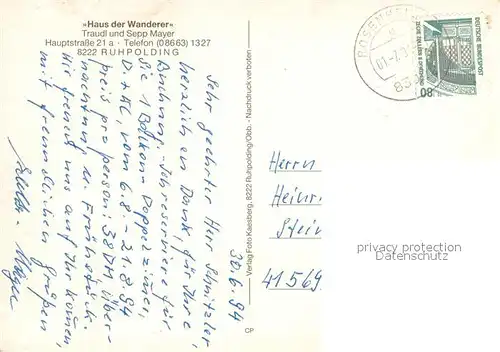 »Haus der Wanderer«
Traudl und Sepp Mayer
Hauptstraße 21 a · Telefon (08663) 1327
8222 RUHPOLDING
30.6.94
Sehr geehrter Herr Schnitzler
herzlichen Dank, für Ihre
Buchung. Ich reserviere für
Sie 1 Balkon-Doppelzimmer,
D+WC, vom 6.8.-21.8.94
preis pro person: 38 DM, Über-
nachtung u. Frühstück.
Wir freuen uns auf Ihr kommen,
mit freundlichen Grüßen
Mayer
Verlag Foto Kaesberg, 8222 Ruhpolding/Obb. - Nachdruck verboten
CP
ROSENHEIM
01-7.9
83
DEUTSCHE BUNDESPOST
80
Herrn
Heinr
Stein
41569
privacy protection
Datenschutz